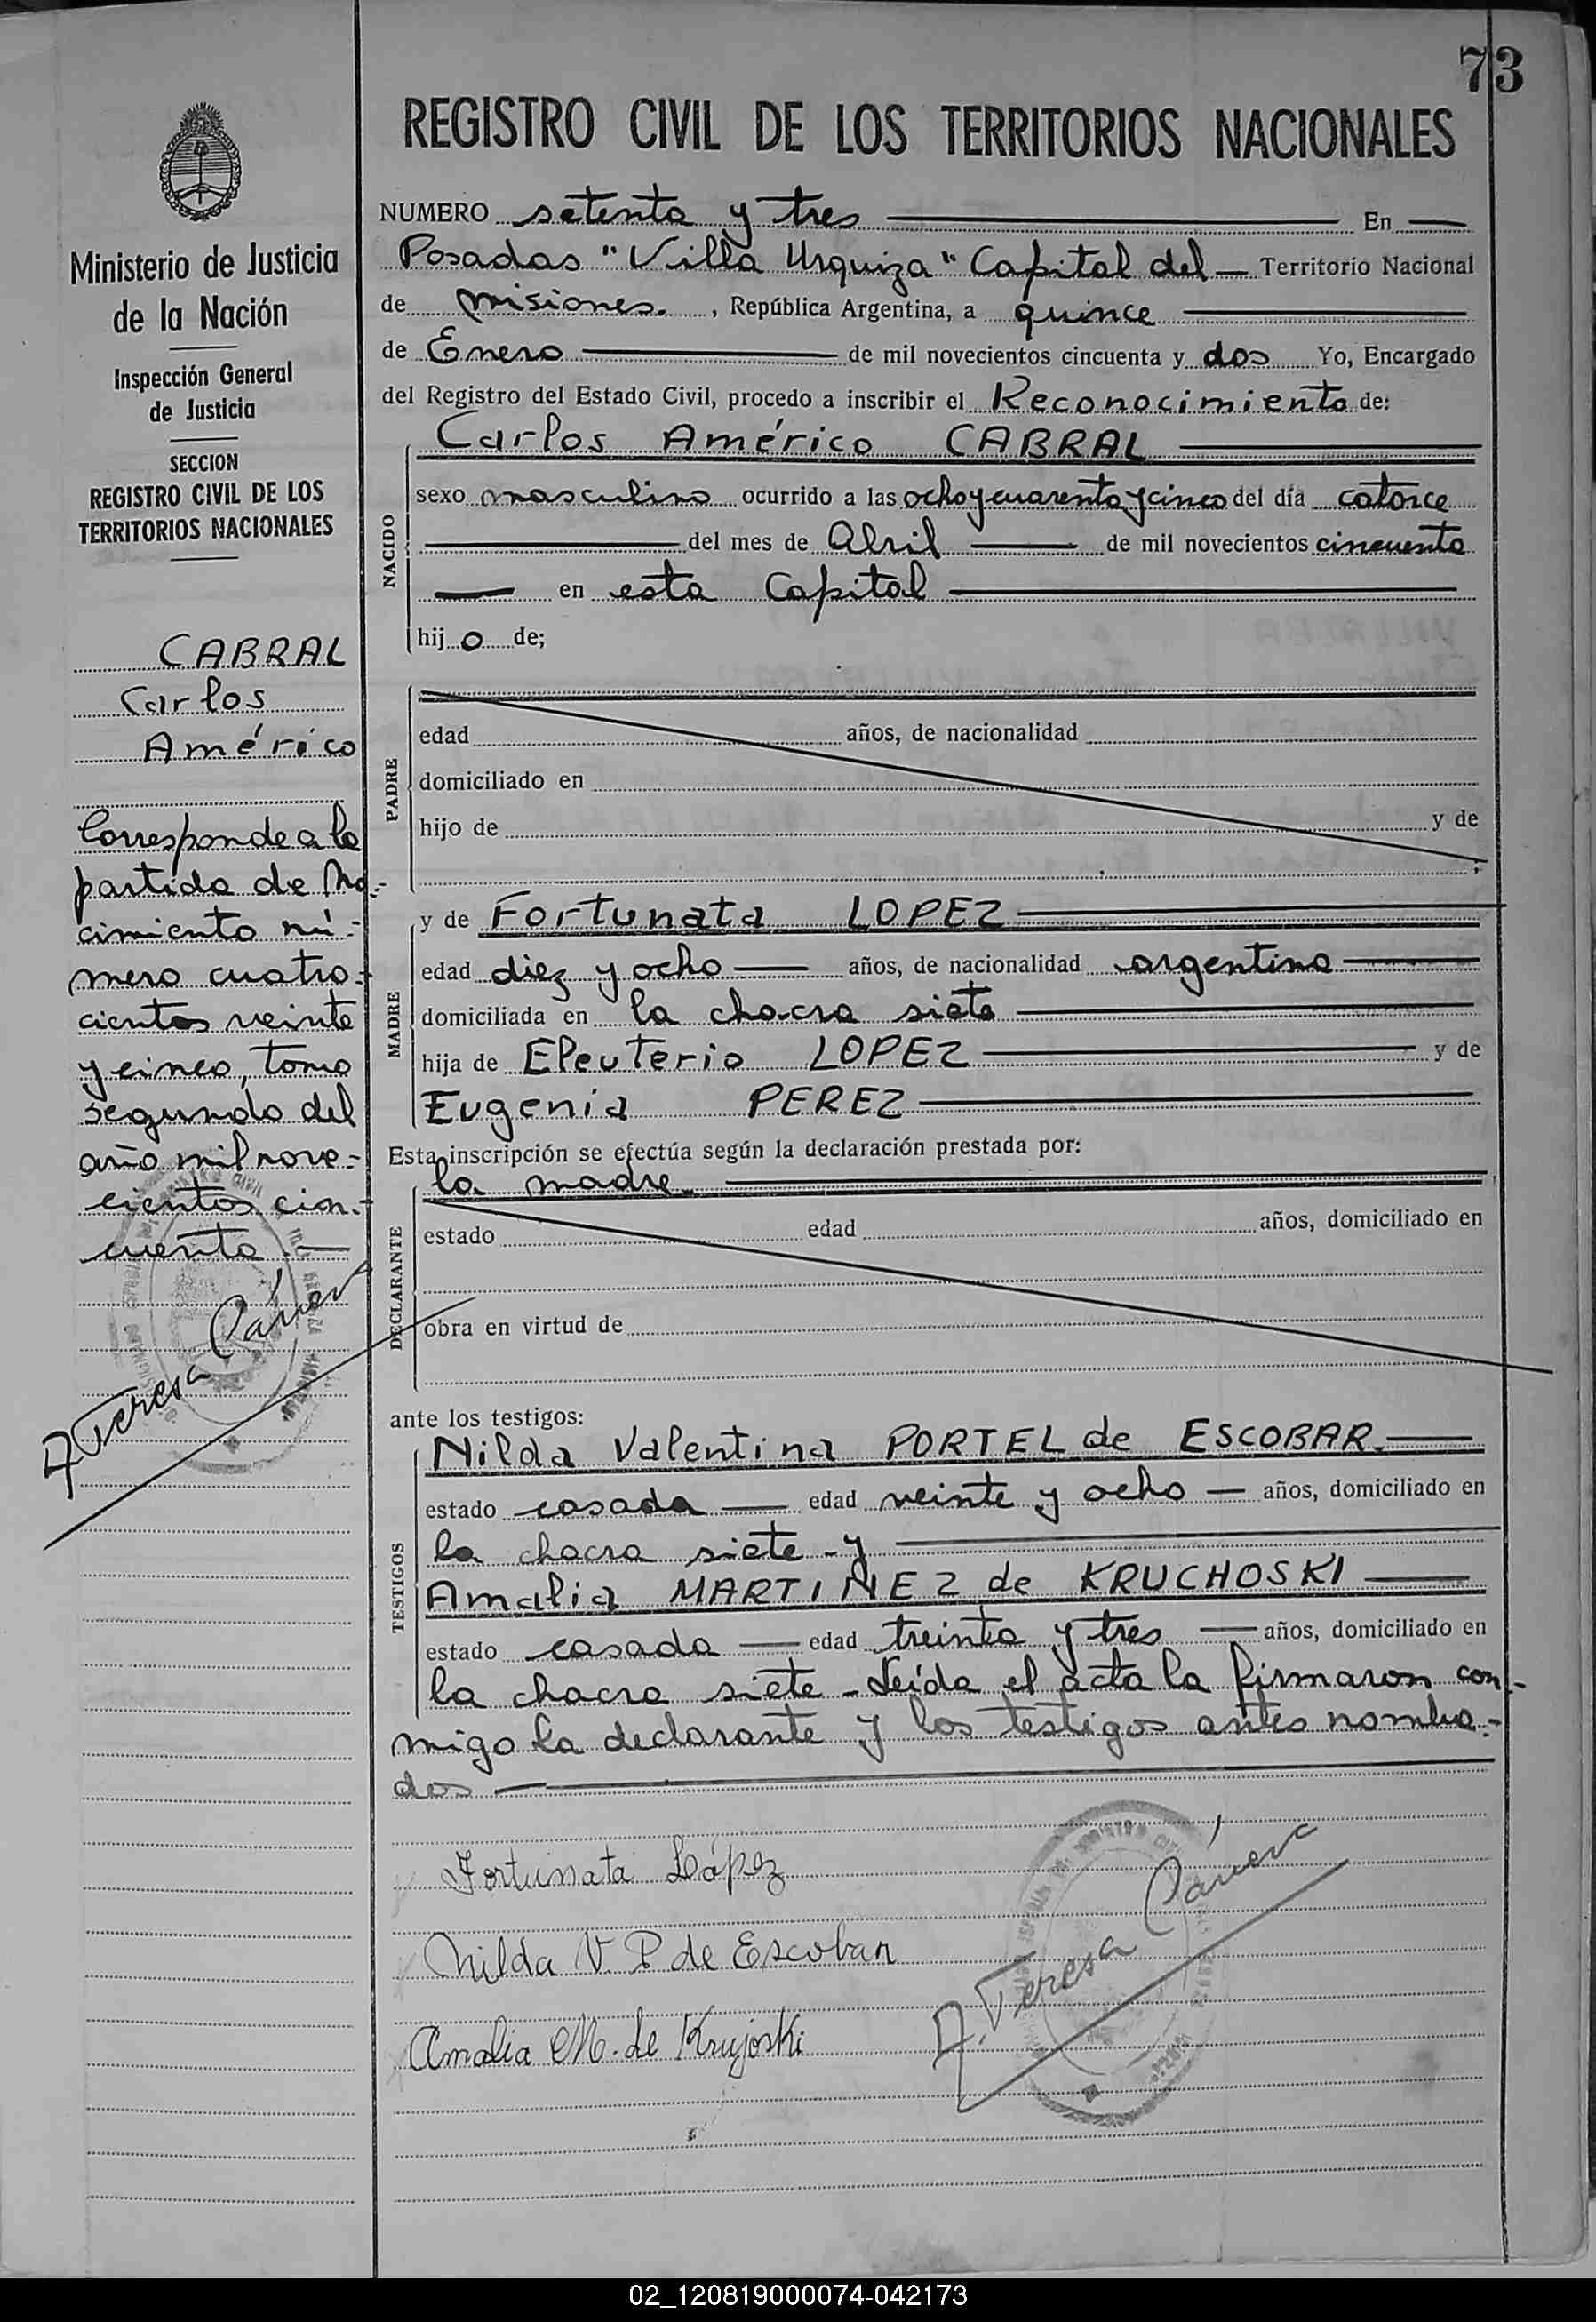 73
REGISTRO CIVIL DE LOS TERRITORIOS NACIONALES
Ministerio de Justicia
de la Nación
Inspección General
de Justicia
SECCION
REGISTRO CIVIL DE LOS
TERRITORIOS NACIONALES
CABRAL
Carlos
Américo
Corresponde a la
partida de Na-
cimiento nú-
mero cuatro-
cientos veinte
y cinco, tomo
segundo del
año mil nove-
cientos cin-
cuenta.—
A. Teresa
NUMERO setenta y tres En
Posadas "Villa Urquiza" Capital del Territorio Nacional
de Misiones. , República Argentina, a quince
de Enero de mil novecientos cincuenta y dos Yo, Encargado
del Registro del Estado Civil, procedo a inscribir el Reconocimiento de:
Carlos Américo CABRAL
NACIDO
sexo masculino ocurrido a las ocho y cuarenta y cinco del día catorce
del mes de Abril de mil novecientos cincuenta
en esta Capital
hijo de;
PADRE
edad años, de nacionalidad
domiciliado en
hijo de y de
;
MADRE
y de Fortunata LOPEZ
edad diez y ocho años, de nacionalidad argentina
domiciliada en la chacra siete
hija de Eleuterio LOPEZ y de
Eugenia PEREZ
Esta inscripción se efectúa según la declaración prestada por:
la madre.
DECLARANTE
estado edad años, domiciliado en
obra en virtud de
ante los testigos:
TESTIGOS
Nilda Valentina PORTEL de ESCOBAR.
estado casada edad veinte y ocho años, domiciliado en
la chacra siete - y
Amalia MARTINEZ de KRUCHOSKI
estado casada edad treinta y tres años, domiciliado en
la chacra siete - Leída el acta la firmaron con-
migo la declarante y los testigos antes nombra-
dos
Fortunata López
Nilda V. P. de Escobar
Amalia M. de Krujoski
A. Teresa
02_120819000074-042173